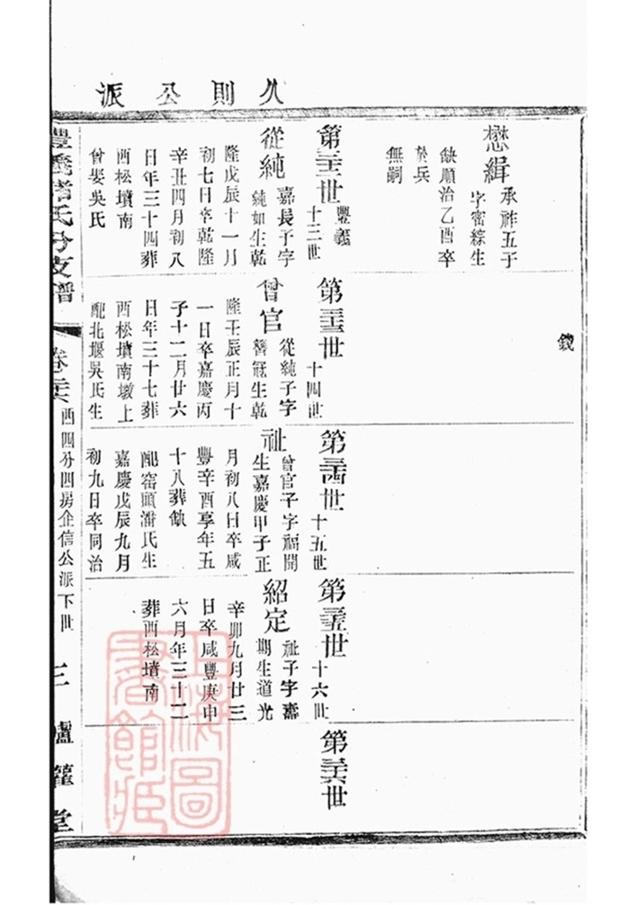 久則公派
缺
懋緝
承祚五子
字密綜生
缺順治乙酉卒
於兵
無嗣
豐義
十三世
從純
嘉長子字
純如生乾
隆戊辰十一月
初七日卒乾隆
辛丑四月初八
日年三十四葬
西松墳南
曾娶吳氏
第二十三世
十四世
曾官
從純子字
簪冠生乾
隆壬辰正月十
一日卒嘉慶丙
子十二月廿六
日年三十七葬
西松墳南墩上
配北堰吳氏生
第二十四世
十五世
祉
曾官子字福開
生嘉慶甲子正
月初八日卒咸
豐辛酉享年五
十八葬缺
配窑頭潘氏生
嘉慶戊辰九月
初九日卒同治
第二十五世
十六世
紹定
祉子字壽
期生道光
辛卯九月廿三
日卒咸豐庚申
六月年三十
葬西松墳南
第二十六世
氏分支譜
西四分四房企信公派下世
三
堂
上海圖
書館藏